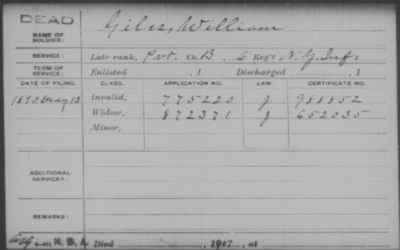 DEAD
NAME OF SOLDIER: Giles, William
SERVICE: Late rank, Pvt. Co. B, 6 Reg't N.Y. Inf.
TERM OF SERVICE: Enlisted , 1 Discharged , 1
DATE OF FILING. CLASS. APPLICATION NO. LAW CERTIFICATE NO.
1890 May 13 Invalid, 775220 J 988852
Widow, 872371 J 652035
Minor,
ADDITIONAL SERVICES:
REMARKS:
N. B. & Died , 1907, at